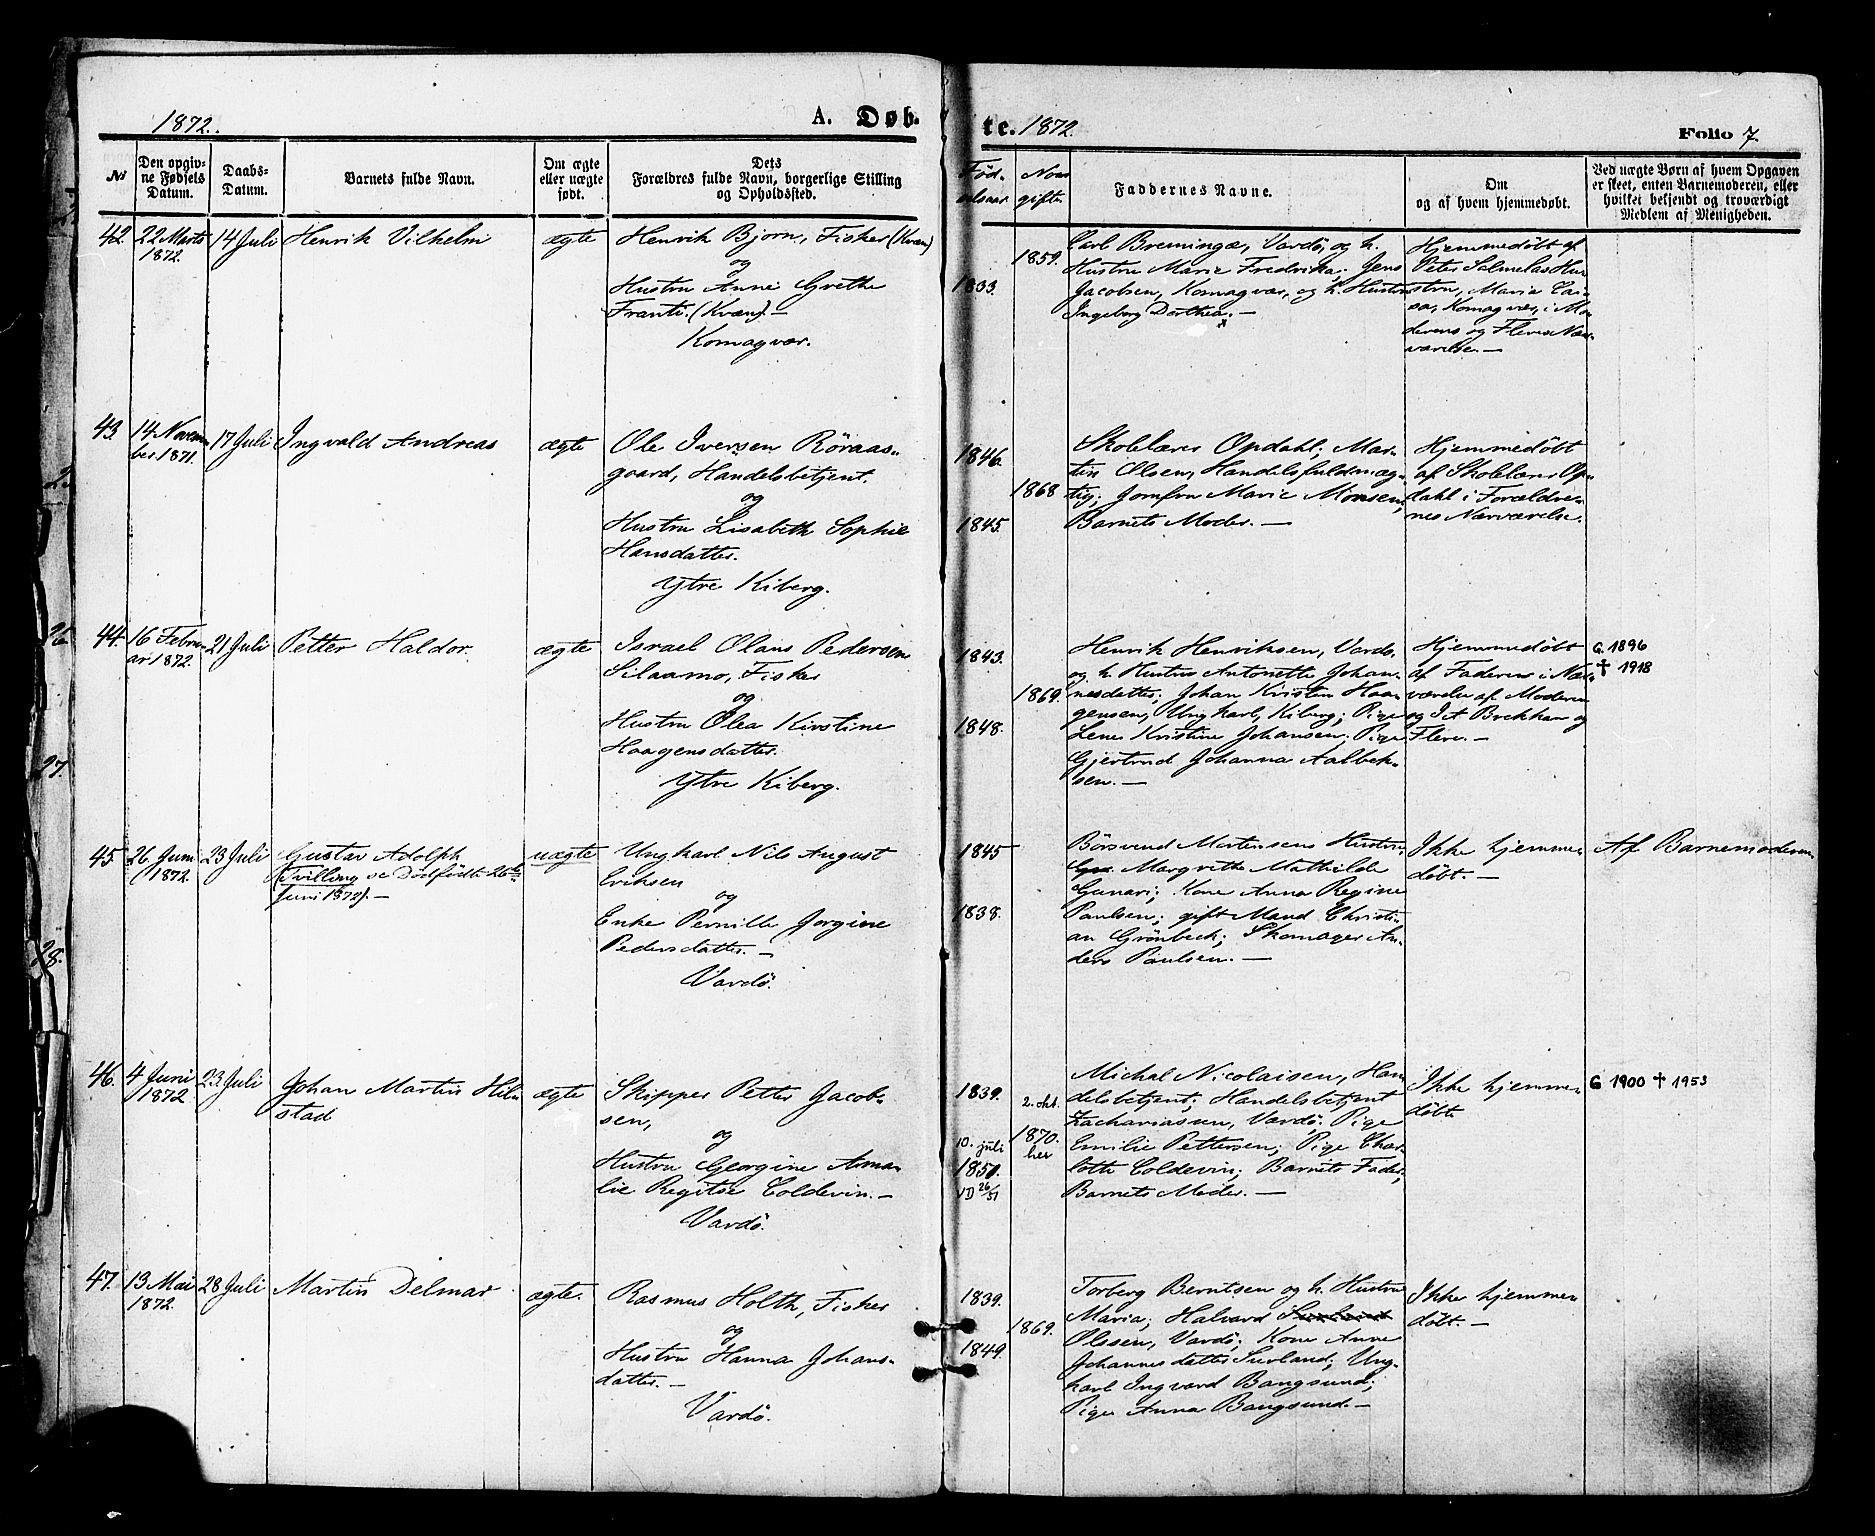 1872.
A. Døb-
te. 1872
Folio 7.
No
Den opgiv-
ne Fødsels
Datum.
Daabs-
Datum.
Barnets fulde Navn.
Om ægte
eller uægte
født.
Dets
Forældres fulde Navn, borgerlige Stilling
og Opholdssted.
Fød-
selsaar
gifte
Faddernes Navne.
Om
og af hvem hjemmedøbt.
Ved uægte Børn af hvem Opgaven
er skeet, enten Barnemoderen, eller
hvilket bekjendt og troværdigt
Medlem af Menigheden.
42.
22 Marts
1872.
14 Juli
Henrik Vilhelm
ægte
Henrik Bjorn, Fisker (Kvæn)
og
Hustru Anne Grethe
Franti. (Kvæn). —
Komagvær.
1833.
1859.
Carl Bremingæ, Vardö, og h.
Hustru Marie Fredrika; Jens
Jacobsen, Komagvær, og h. Hustru
Ingeborg Dorthea. —
Hjemmedöbt af
Peter Salmelas Hu-
stru, Maria Cai-
sa, Komagvær, i Mo-
derens og Fleres Nær-
værelse. —
43.
14 Novem-
ber 1871.
17 Juli
Ingvald Andreas
ægte
Ole Iversen Röraas-
gaard, Handelsbetjent.
og
Hustru Lisabeth Sophie
Hansdatter.
Ytre Kiberg.
1846.
1845.
1868
Skolelærer Opdahl; Mar-
tin Olsen, Handelsfuldmæg-
tig; Jomfru Marie Monsen;
Barnets Moder. —
Hjemmedöbt
af Skolelærer Op-
dahl i Forældre-
nes Nærværelse.
44.
16 Febru-
ar 1872.
21 Juli
Petter Haldor.
ægte
Israel Olaus Pedersen
Silaamo, Fisker
og
Hustru Olea Kirstine
Haagensdatter.
Ytre Kiberg.
1843.
1848.
1869.
Henrik Henriksen, Vardö,
og h. Hustru Antonette Johan-
nesdatter; Johan Kristin Haa-
gensen, Ungkarl, Kiberg; Pige
Lene Kristine Johansen; Pige
Gjertrud Johanna Aalbek-
sen. —
Hjemmedöbt
af Faderen i Nær-
værelse af Moderen
og J. A. Brekkan og
Flere. —
G. 1896
† 1918
45
26 Juni
1872.
23 Juli
Gustav Adolph
(Tvilling se Dödfödte 26de
Juni 1872). —
uægte
Ungkarl Nils August
Eriksen
og
Enke Pernille Jorgine
Pedersdatter. —
Vardö.
1845
1838.
Börsvend Mortensens Hustru
Margrethe Mathilde
Gunari; Kone Anna Regine
Paulsen; gift Mand Christi-
an Grönbeck; Skomager An-
ders Paulsen. —
Ikke hjemme-
döbt. —
Af Barnemoderen
46.
4 Juni
1872
23 Juli
Johan Martin Hil-
stad
ægte
Skipper Petter Jacob-
sen,
og
Hustru Georgine Ama-
lie Regitse Coldevin. —
Vardö.
1839.
10. juli
1851.
VD 26/51
2. okt.
1870.
her
Michal Nicolaisen, Han-
delsbetjent; Handelsbetjent
Zachariassen, Vardö; Pige
Emilie Pettersen; Pige Char-
lotte Coldevin; Barnets Fader;
Barnets Moder. —
Ikke hjemme-
döbt.
G 1900 † 1953
47.
13 Mai
1872.
28 Juli
Martin Delmar
ægte.
Rasmus Holth, Fisker
og
Hustru Hanna Johans-
datter. —
Vardö.
1839.
1849.
1869.
Torberg Berntsen og h. Hustru
Maria; Halvard
Olssen, Vardö; Kone Anne
Johannesdatter Surland; Ung-
karl Ingvard Bangsund;
Pige Anna Bangsund. —
Ikke hjemme-
döbt. —
26
27.
28.